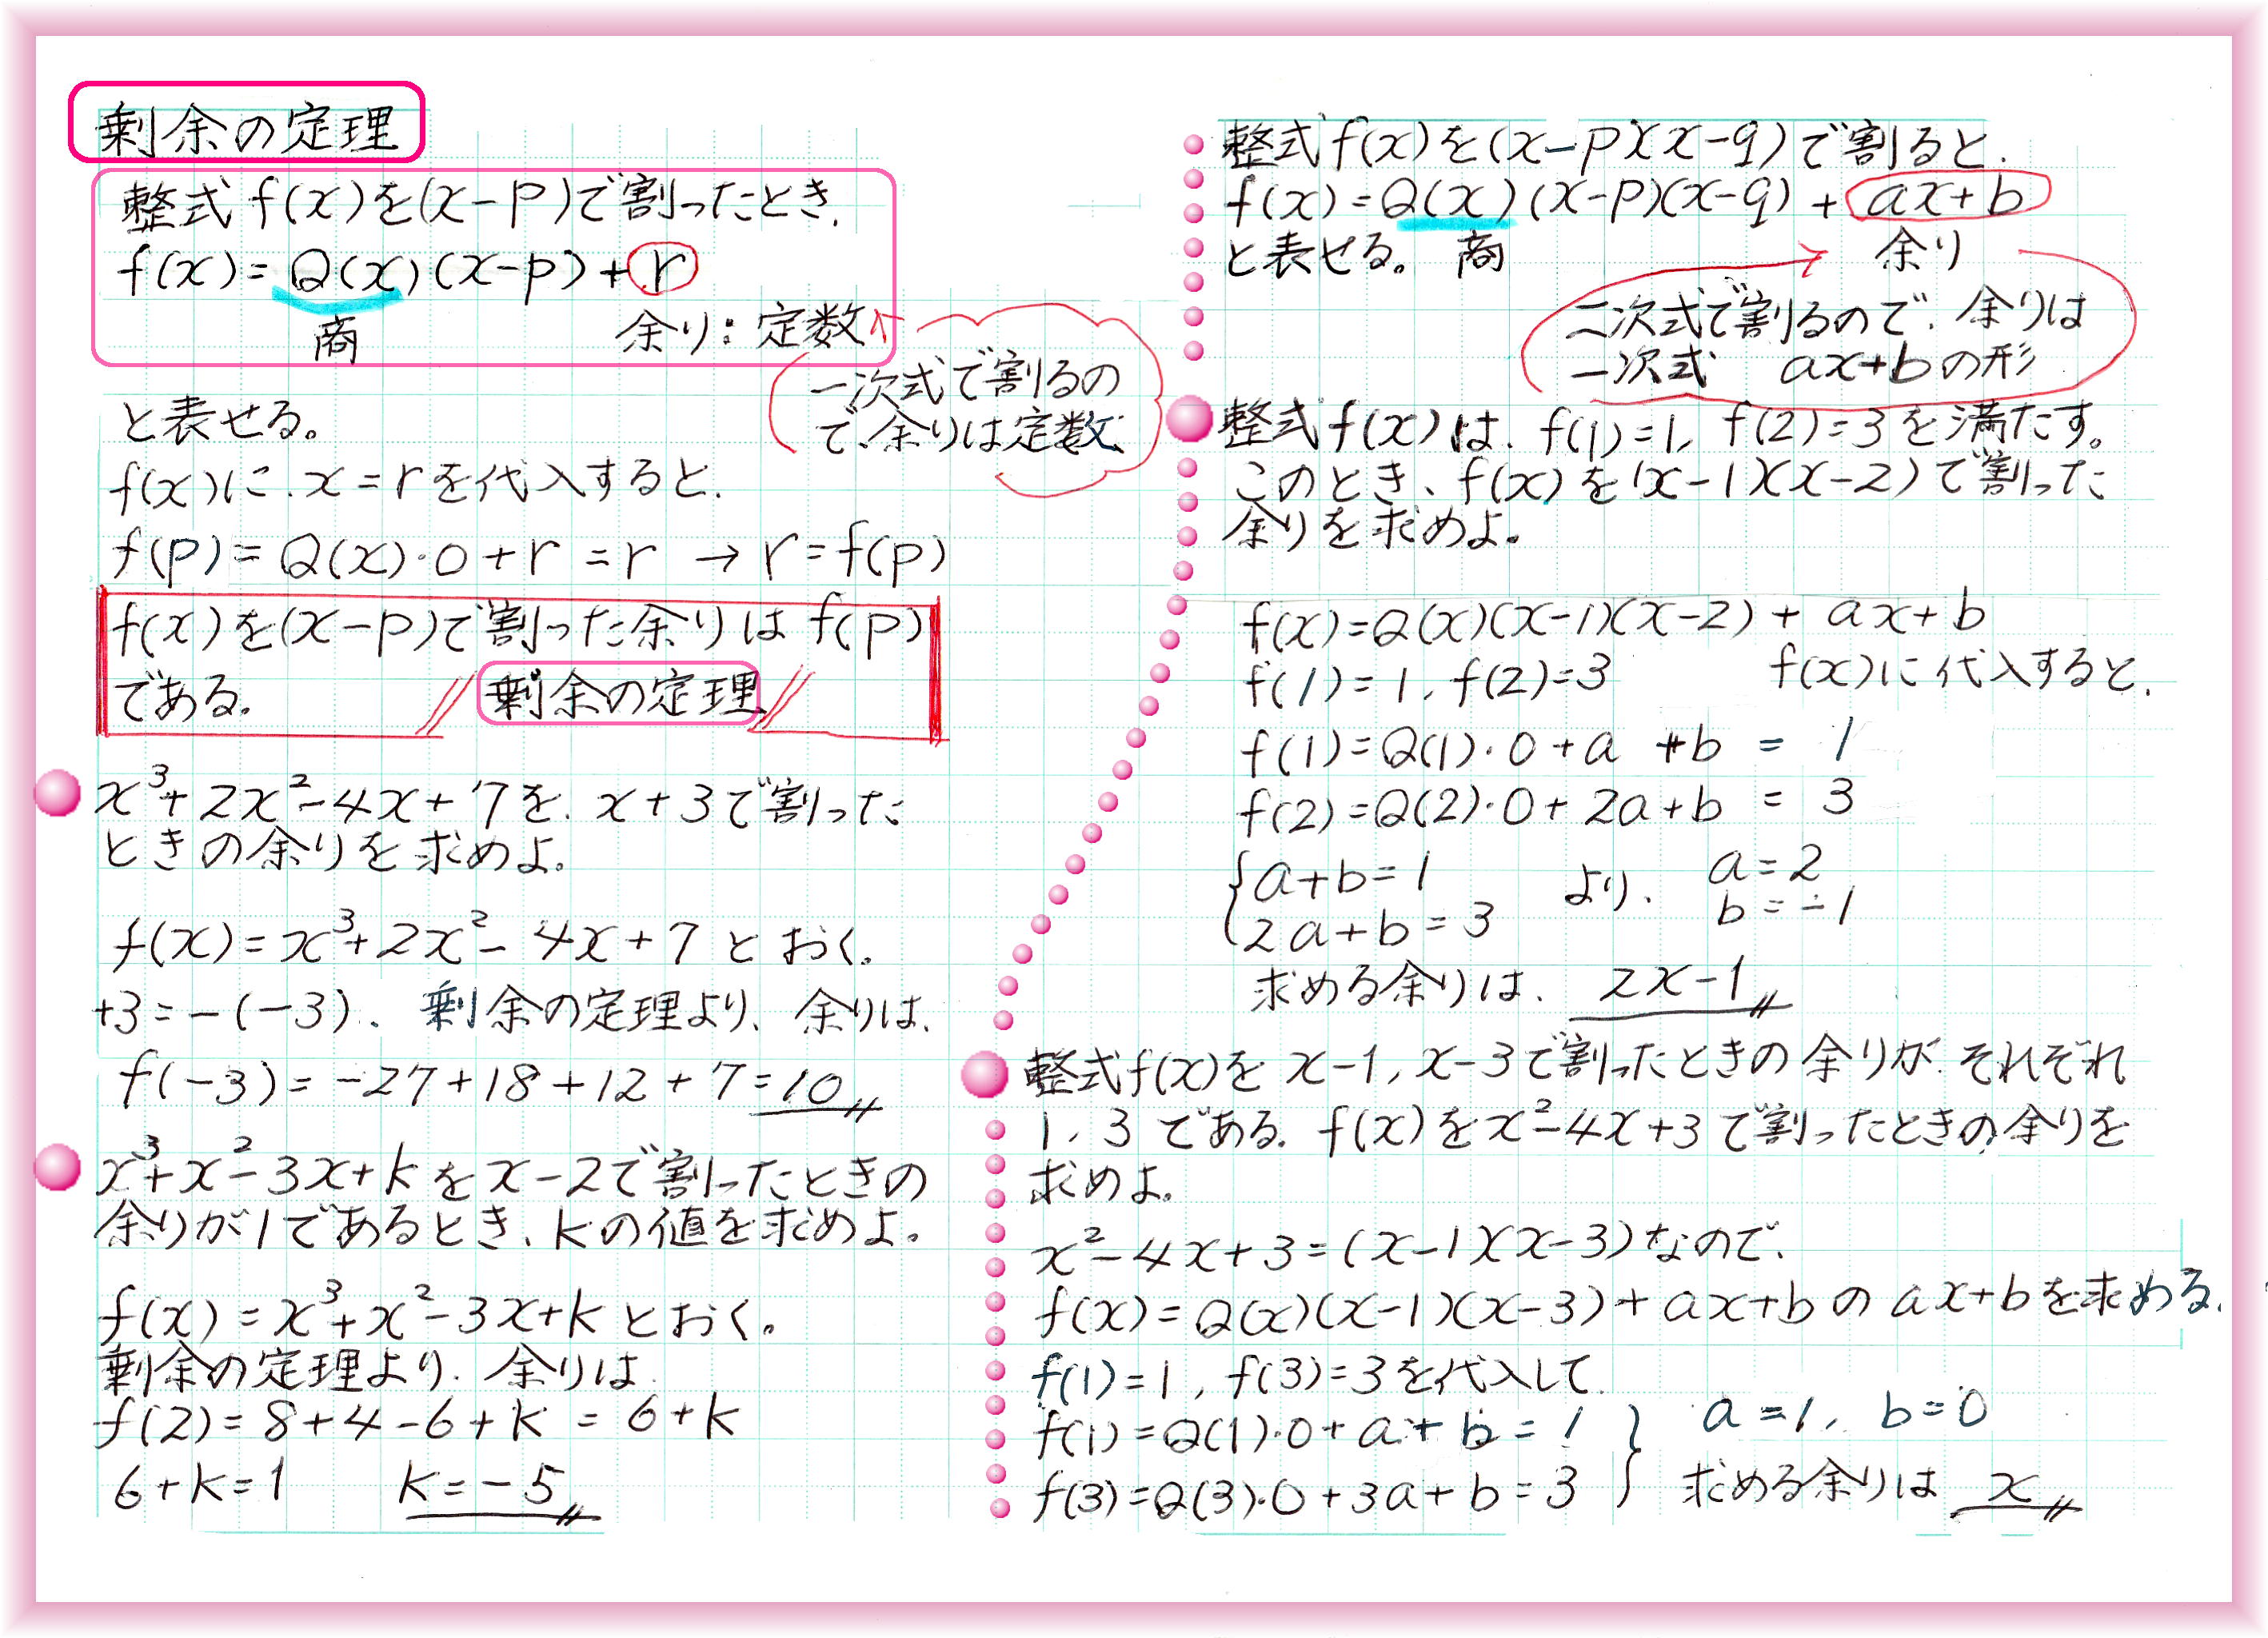 剰余の定理
整式f(x)を(x-p)で割ったとき、
f(x)=Q(x)(x-p)+r
商 余り：定数
一次式で割るの
で、余りは定数
と表せる。
f(x)に、x=rを代入すると、
f(p)=Q(x)·0+r=r → r=f(p)
f(x)を(x-p)で割った余りはf(p)
である。 剰余の定理
x³+2x²-4x+7を、x+3で割った
ときの余りを求めよ。
f(x)=x³+2x²-4x+7とおく。
+3=-(-3)、剰余の定理より、余りは、
f(-3)=-27+18+12+7=10
x³+x²-3x+kをx-2で割ったときの
余りが1であるとき、kの値を求めよ。
f(x)=x³+x²-3x+kとおく。
剰余の定理より、余りは
f(2)=8+4-6+k=6+k
6+k=1 k=-5
整式f(x)を(x-p)(x-q)で割ると、
f(x)=Q(x)(x-p)(x-q)+ax+b
と表せる。 商 余り
二次式で割るので、余りは
一次式 ax+bの形
整式f(x)は、f(1)=1, f(2)=3を満たす。
このとき、f(x)を(x-1)(x-2)で割った
余りを求めよ。
f(x)=Q(x)(x-1)(x-2)+ax+b
f(1)=1, f(2)=3 f(x)に代入すると、
f(1)=Q(1)·0+a+b=1
f(2)=Q(2)·0+2a+b=3
{a+b=1 より、 a=2
2a+b=3 b=-1
求める余りは、2x-1
整式f(x)をx-1, x-3で割ったときの余りが、それぞれ
1, 3である。f(x)をx²-4x+3で割ったときの余りを
求めよ。
x²-4x+3=(x-1)(x-3)なので、
f(x)=Q(x)(x-1)(x-3)+ax+bのax+bを求める。
f(1)=1, f(3)=3を代入して、
f(1)=Q(1)·0+a+b=1 } a=1, b=0
f(3)=Q(3)·0+3a+b=3 } 求める余りは x